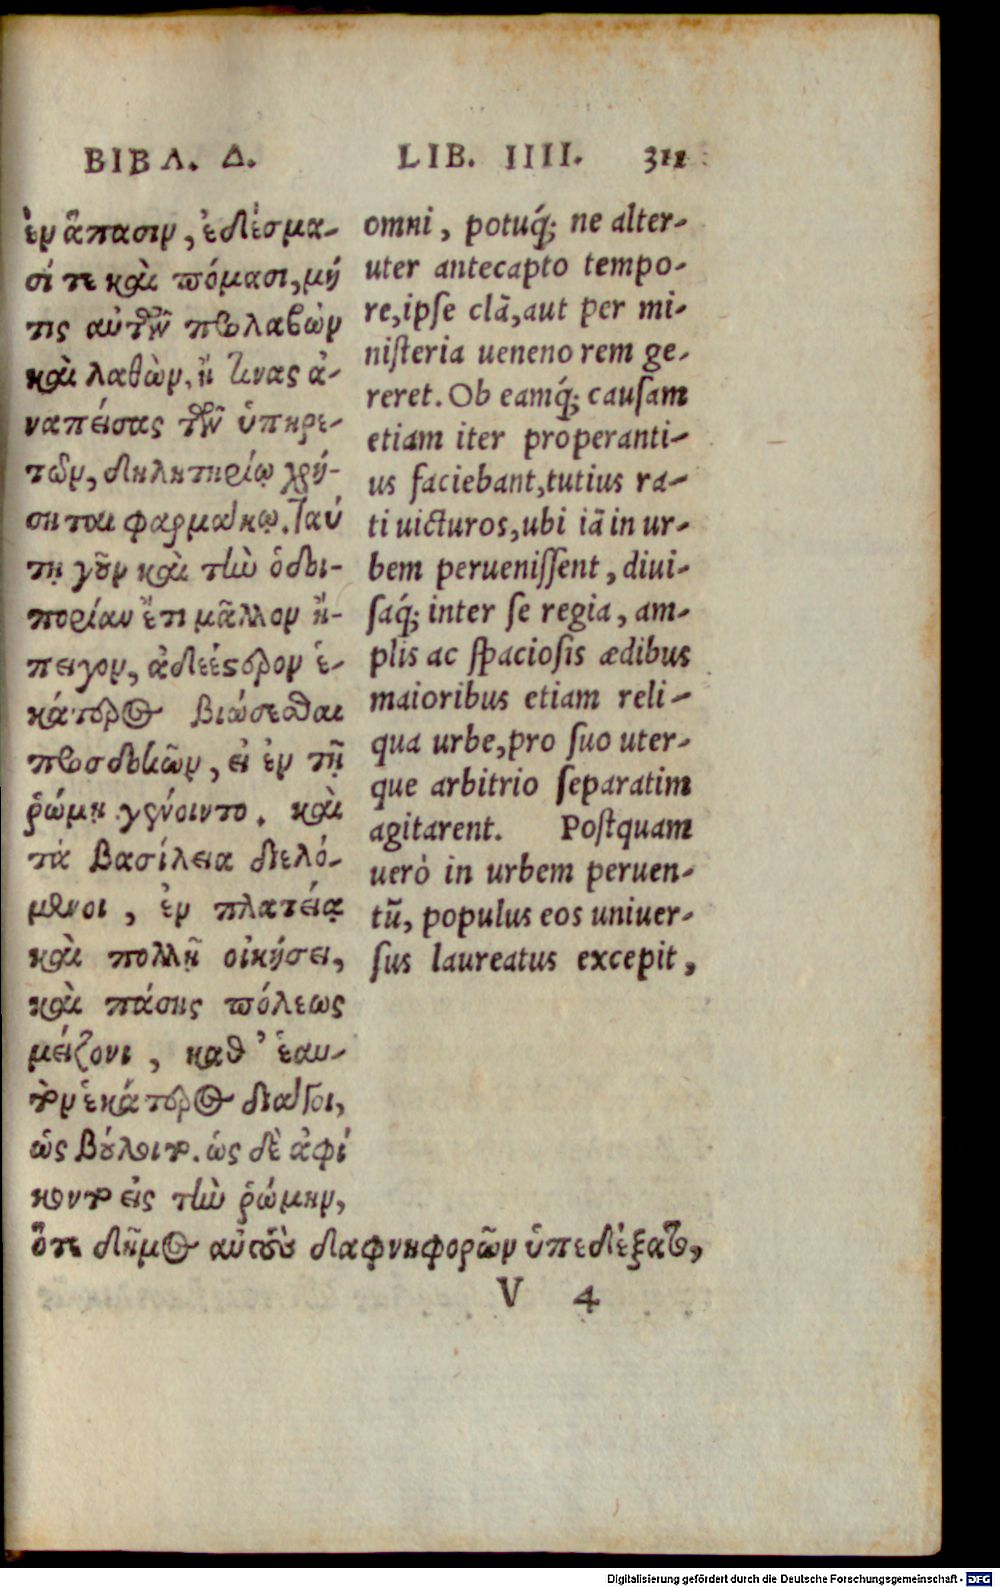 ΒΙΒΛ. Δ.
ἐν ἅπασιν, ἐδέσμα-
σί τε καὶ πόμασι, μή
τις αὐτῶν προλαβὼν
καὶ λαθὼν, ἤ τινας ἀ-
ναπείσας τῶν ὑπηρε-
τῶν, δηλητηρίῳ χρή-
σηται φαρμάκῳ. Ταύ
τῃ γοῦν καὶ τὴν ὁδοι-
πορίαν ἔτι μᾶλλον ἤ-
πειγον, ἀδεέστερον ἑ-
κάτερος βιώσεσθαι
προσδοκῶν, εἰ ἐν τῇ
ῥώμῃ γένοιντο. καὶ
τὰ βασίλεια διελό-
μενοι, ἐν πλατείᾳ
καὶ πολλῇ οἰκήσει,
καὶ πάσης πόλεως
μείζονι, καθ' ἑαυ-
τὸν ἑκάτερος διάγοι,
ὡς βούλοιτο. ὡς δὲ ἀφί
κοντο εἰς τὴν ῥώμην,
ὅτε δῆμος αὐτοὺς δαφνηφορῶν ὑπεδέξατο,
LIB. IIII. 311
omni, potuq́; ne alter-
uter antecapto tempo-
re, ipse clã, aut per mi-
nisteria ueneno rem ge-
reret. Ob eamq́; causam
etiam iter properanti-
us faciebant, tutius ra-
ti uicturos, ubi iã in ur-
bem peruenissent, diui-
saq́; inter se regia, am-
plis ac spaciosis ædibus
maioribus etiam reli-
qua urbe, pro suo uter-
que arbitrio separatim
agitarent. Postquam
uerò in urbem peruen-
tũ, populus eos uniuer-
sus laureatus excepit,
V 4
Digitalisierung gefördert durch die Deutsche Forschungsgemeinschaft - DFG